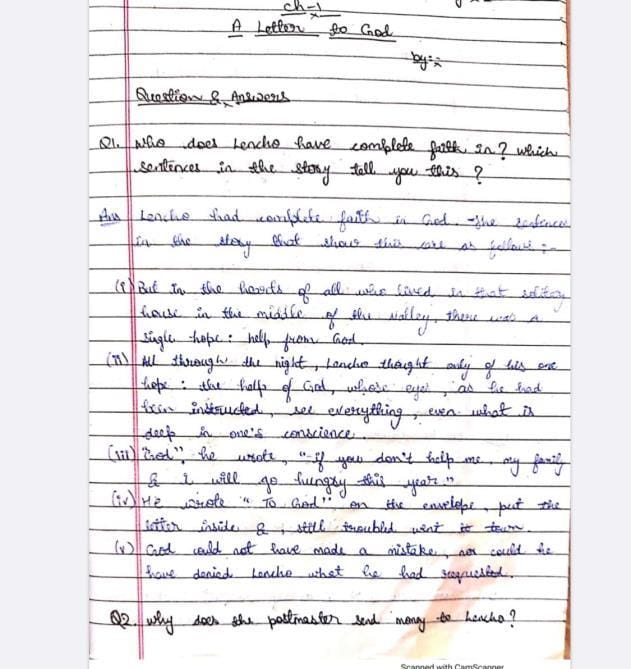 Ch-1
A Letter to God
by:-
Question & Answers
Q1. Who does Lencho have complete faith in? which
sentences in the story tell you this?
Ans Lencho had complete faith in God. The sentences
in the story that show this are as follows:-
(i) But in the hearts of all who lived in that solitary
house in the middle of the valley, there was a
single hope: help from God.
(ii) All through the night, Lencho thought only of his one
hope: the help of God, whose eyes, as he had
been instructed, see everything, even what is
deep in one's conscience.
(iii) "God", he wrote, "if you don't help me, my family
& I will go hungry this year."
(iv) He wrote "To God" on the envelope, put the
letter inside &, still troubled went to town.
(v) God could not have made a mistake, nor could he
have denied Lencho what he had requested.
Q2. Why does the postmaster send money to Lencho?
Scanned with CamScanner